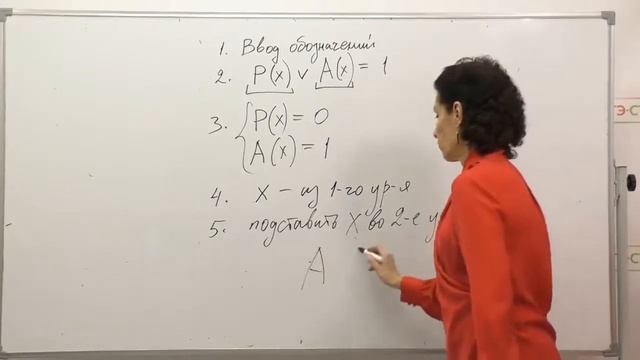 1. Ввод обозначений
2. P(x) v A(x) = 1
3. { P(x) = 0
A(x) = 1
4. x – из 1-го ур-я
5. подставить X во 2-е у
A